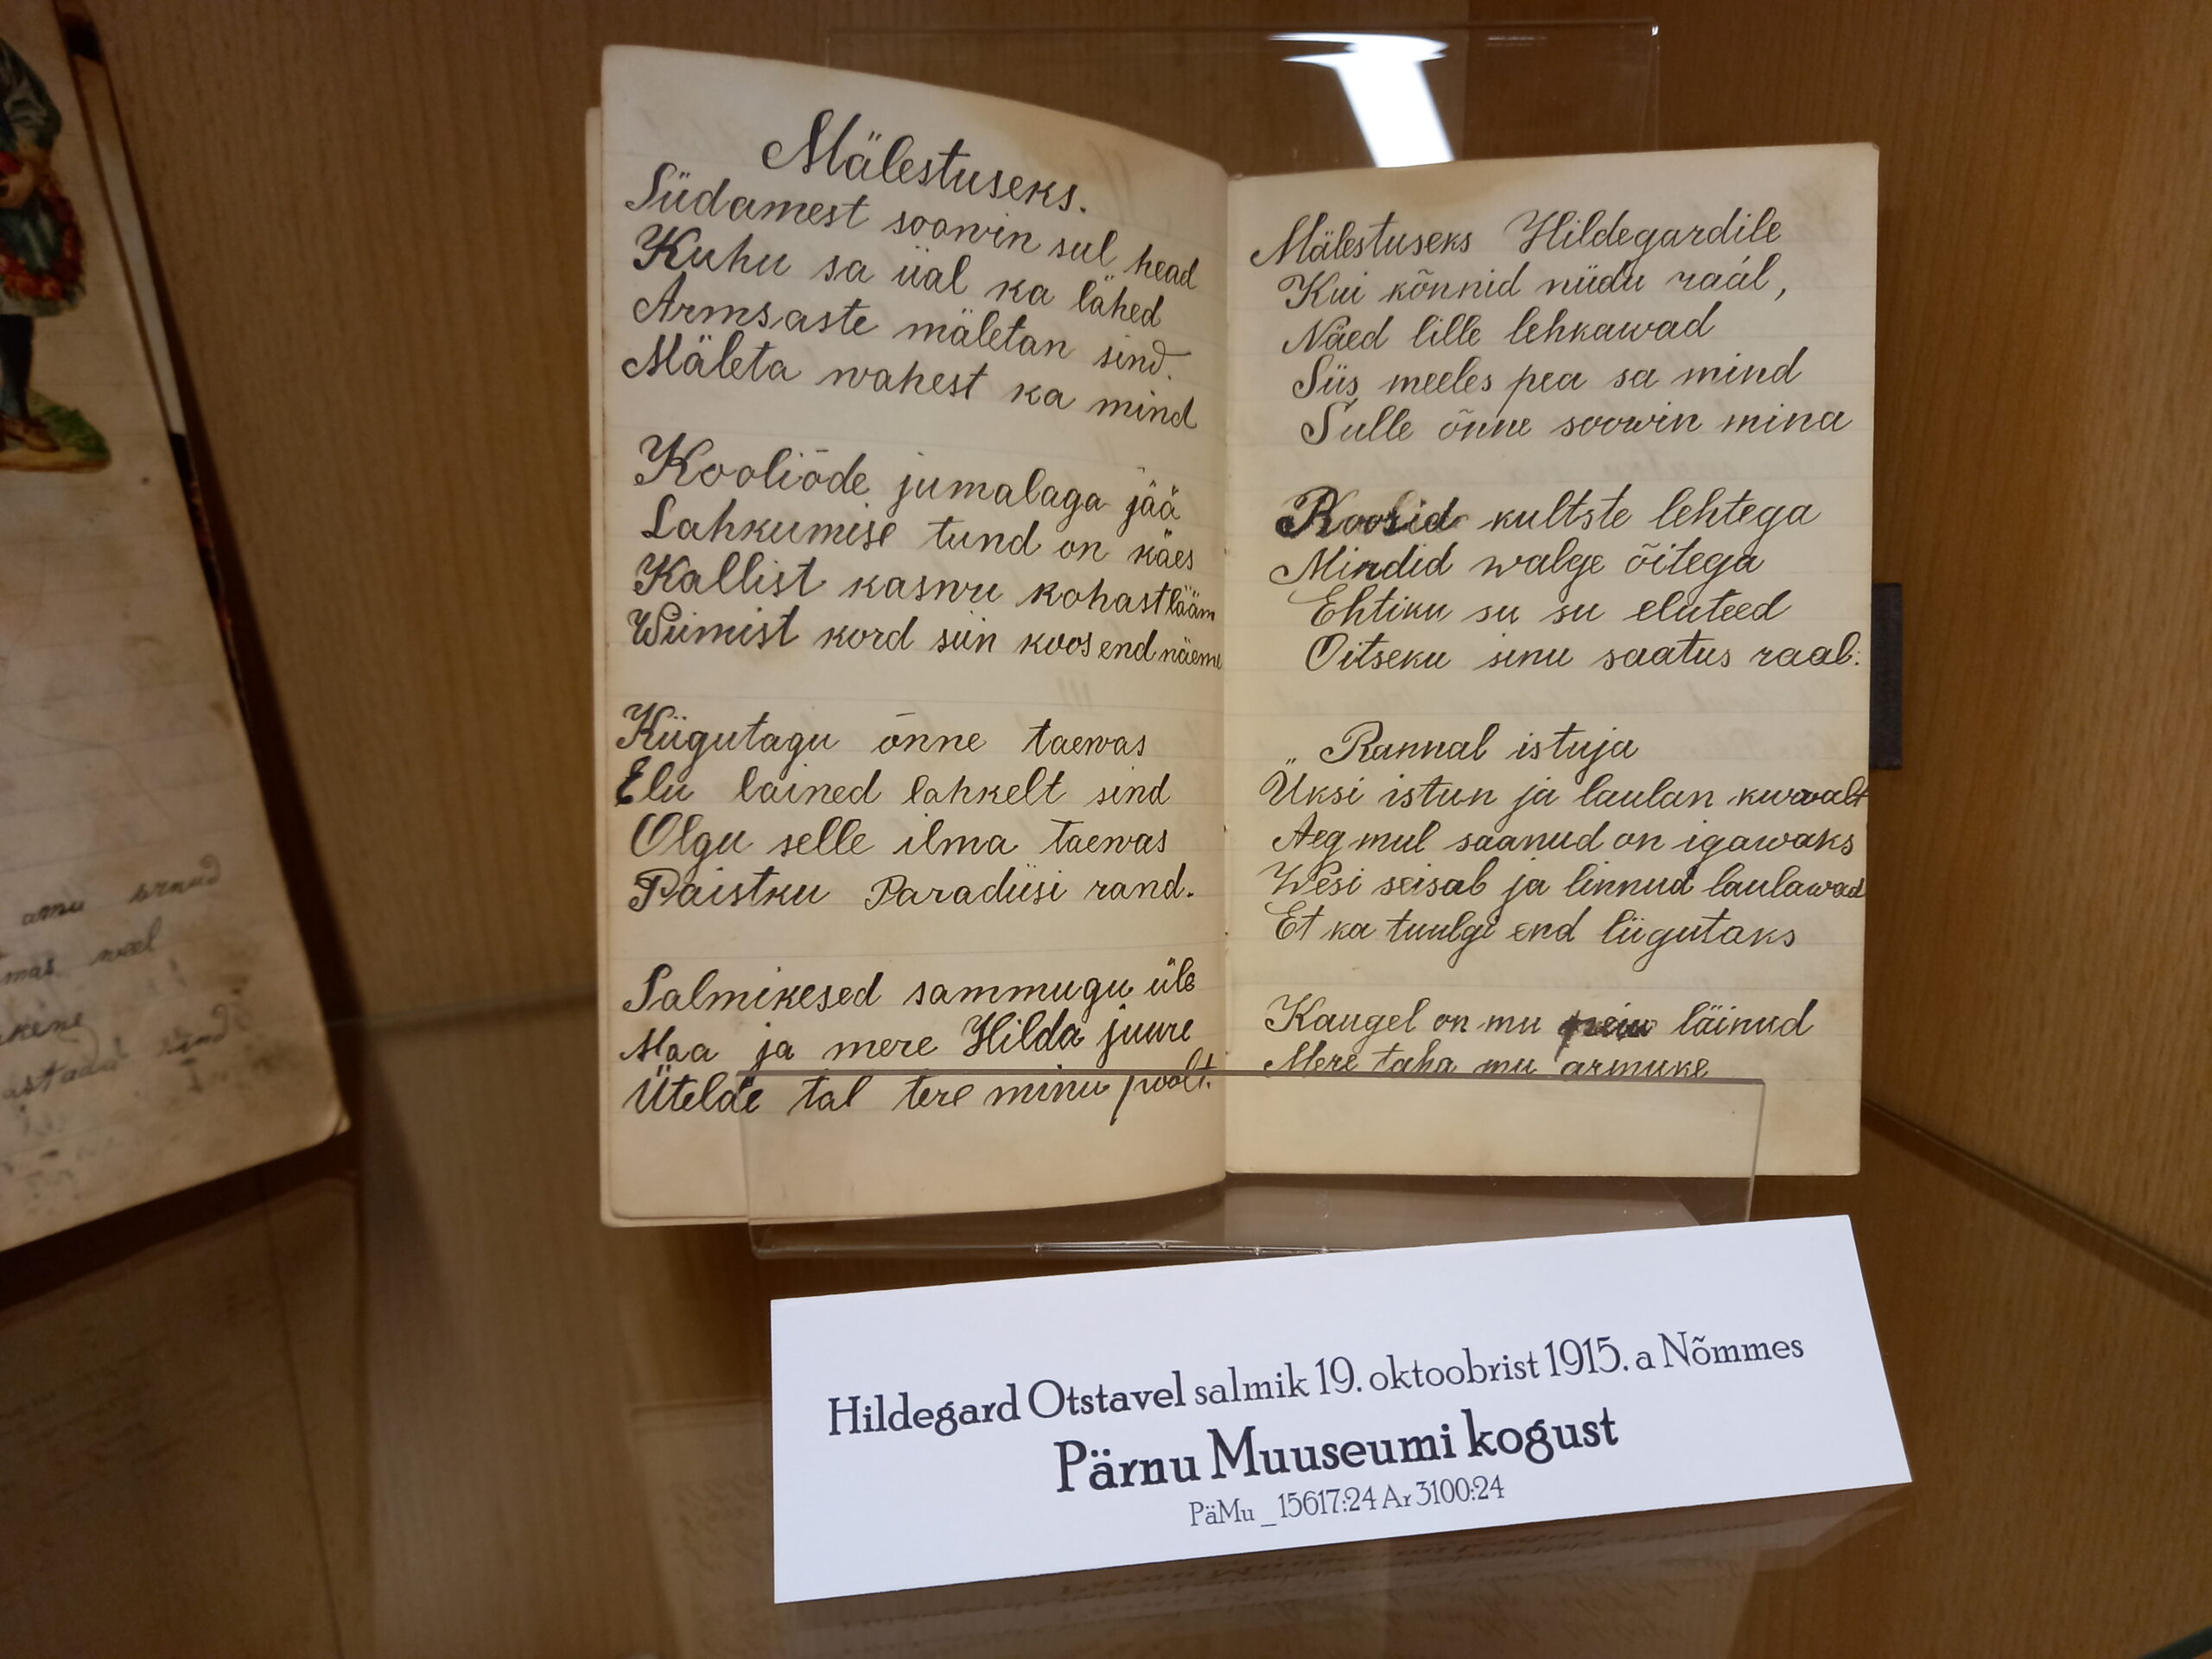 Mälestuseks.
Südamest soowin sul head
Kuhu sa üal ka lähed
Armsaste mäletan sind.
Mäleta wahest ka mind
Kooliõde jumalaga jää
Lahkumise tund on käes
Kallist kaswu kohast lääm
Wiimist kord siin koos end näeme
Kiigutagu õnne taewas
Elu lained lahkelt sind
Olgu selle ilma taewas
Paistku Paradiisi rand.
Salmikesed sammugu üle
Maa ja mere Hilda juure
Ütelde tal tere minu poolt.
Mälestuseks Hildegardile
Kui kõnnid niidu raál,
Näed lille lehkawad
Siis meeles pea sa mind
Sulle õnne soowin mina
Roosid kultste lehtega
Mindid walge õitega
Ehtiku su su eluteed
Oitseku sinu saatus raal.
Rannal istuja
Üksi istun ja laulan kurwalt
Aeg mul saanud on igawaks
Wesi seisab ja linnud laulawad
Et ka tuulgi end liigutaks
Kaugel on mu peiu läinud
Mere taha mu armuke
amu
weel
Hildegard Otstavel salmik 19. oktoobrist 1915. a Nõmmes
Pärnu Muuseumi kogust
PäMu _15617:24 Ar 3100:24